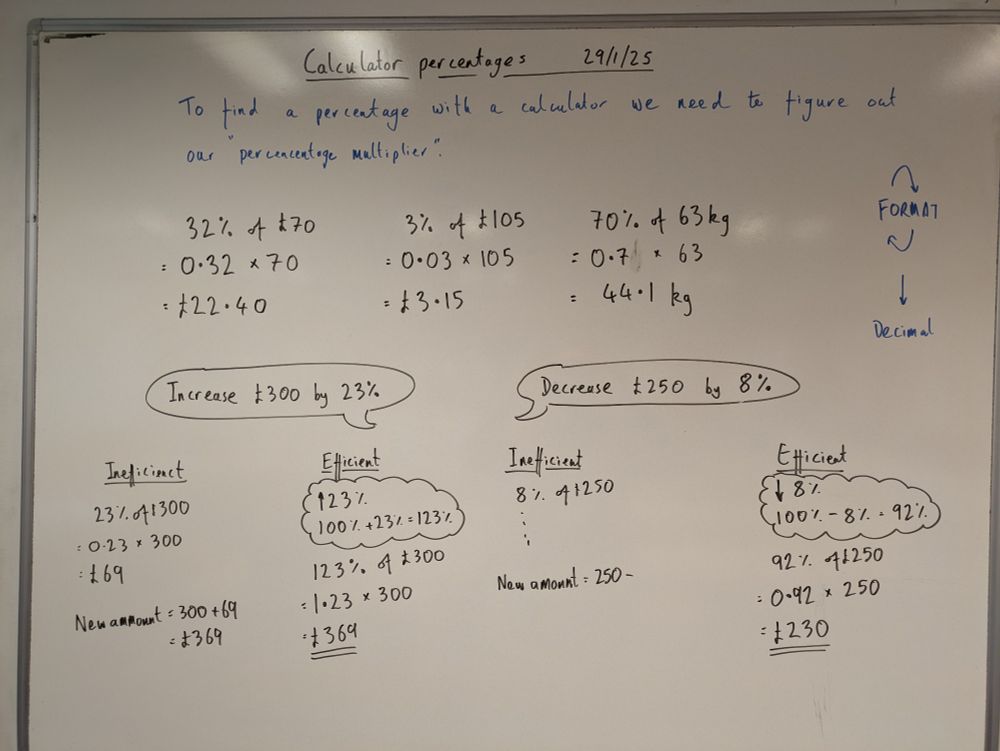 Calculator percentages 29/1/25
To find a percentage with a calculator we need to figure out
our "percencentage multiplier".
32% of £70
= 0.32 × 70
= £22.40
3% of £105
= 0.03 × 105
= £3.15
70% of 63kg
= 0.7 × 63
= 44.1 kg
FORMAT
↓
Decimal
Increase £300 by 23%
Inefficienct
23% of £300
= 0.23 × 300
= £69
New ammount = 300 + 69
= £369
Efficient
↑23%
100% + 23% = 123%
123% of £300
= 1.23 × 300
= £369
Decrease £250 by 8%
Inefficient
8% of £250
New amount = 250 -
Efficient
↓ 8%
100% - 8% = 92%
92% of £250
= 0.92 × 250
= £230